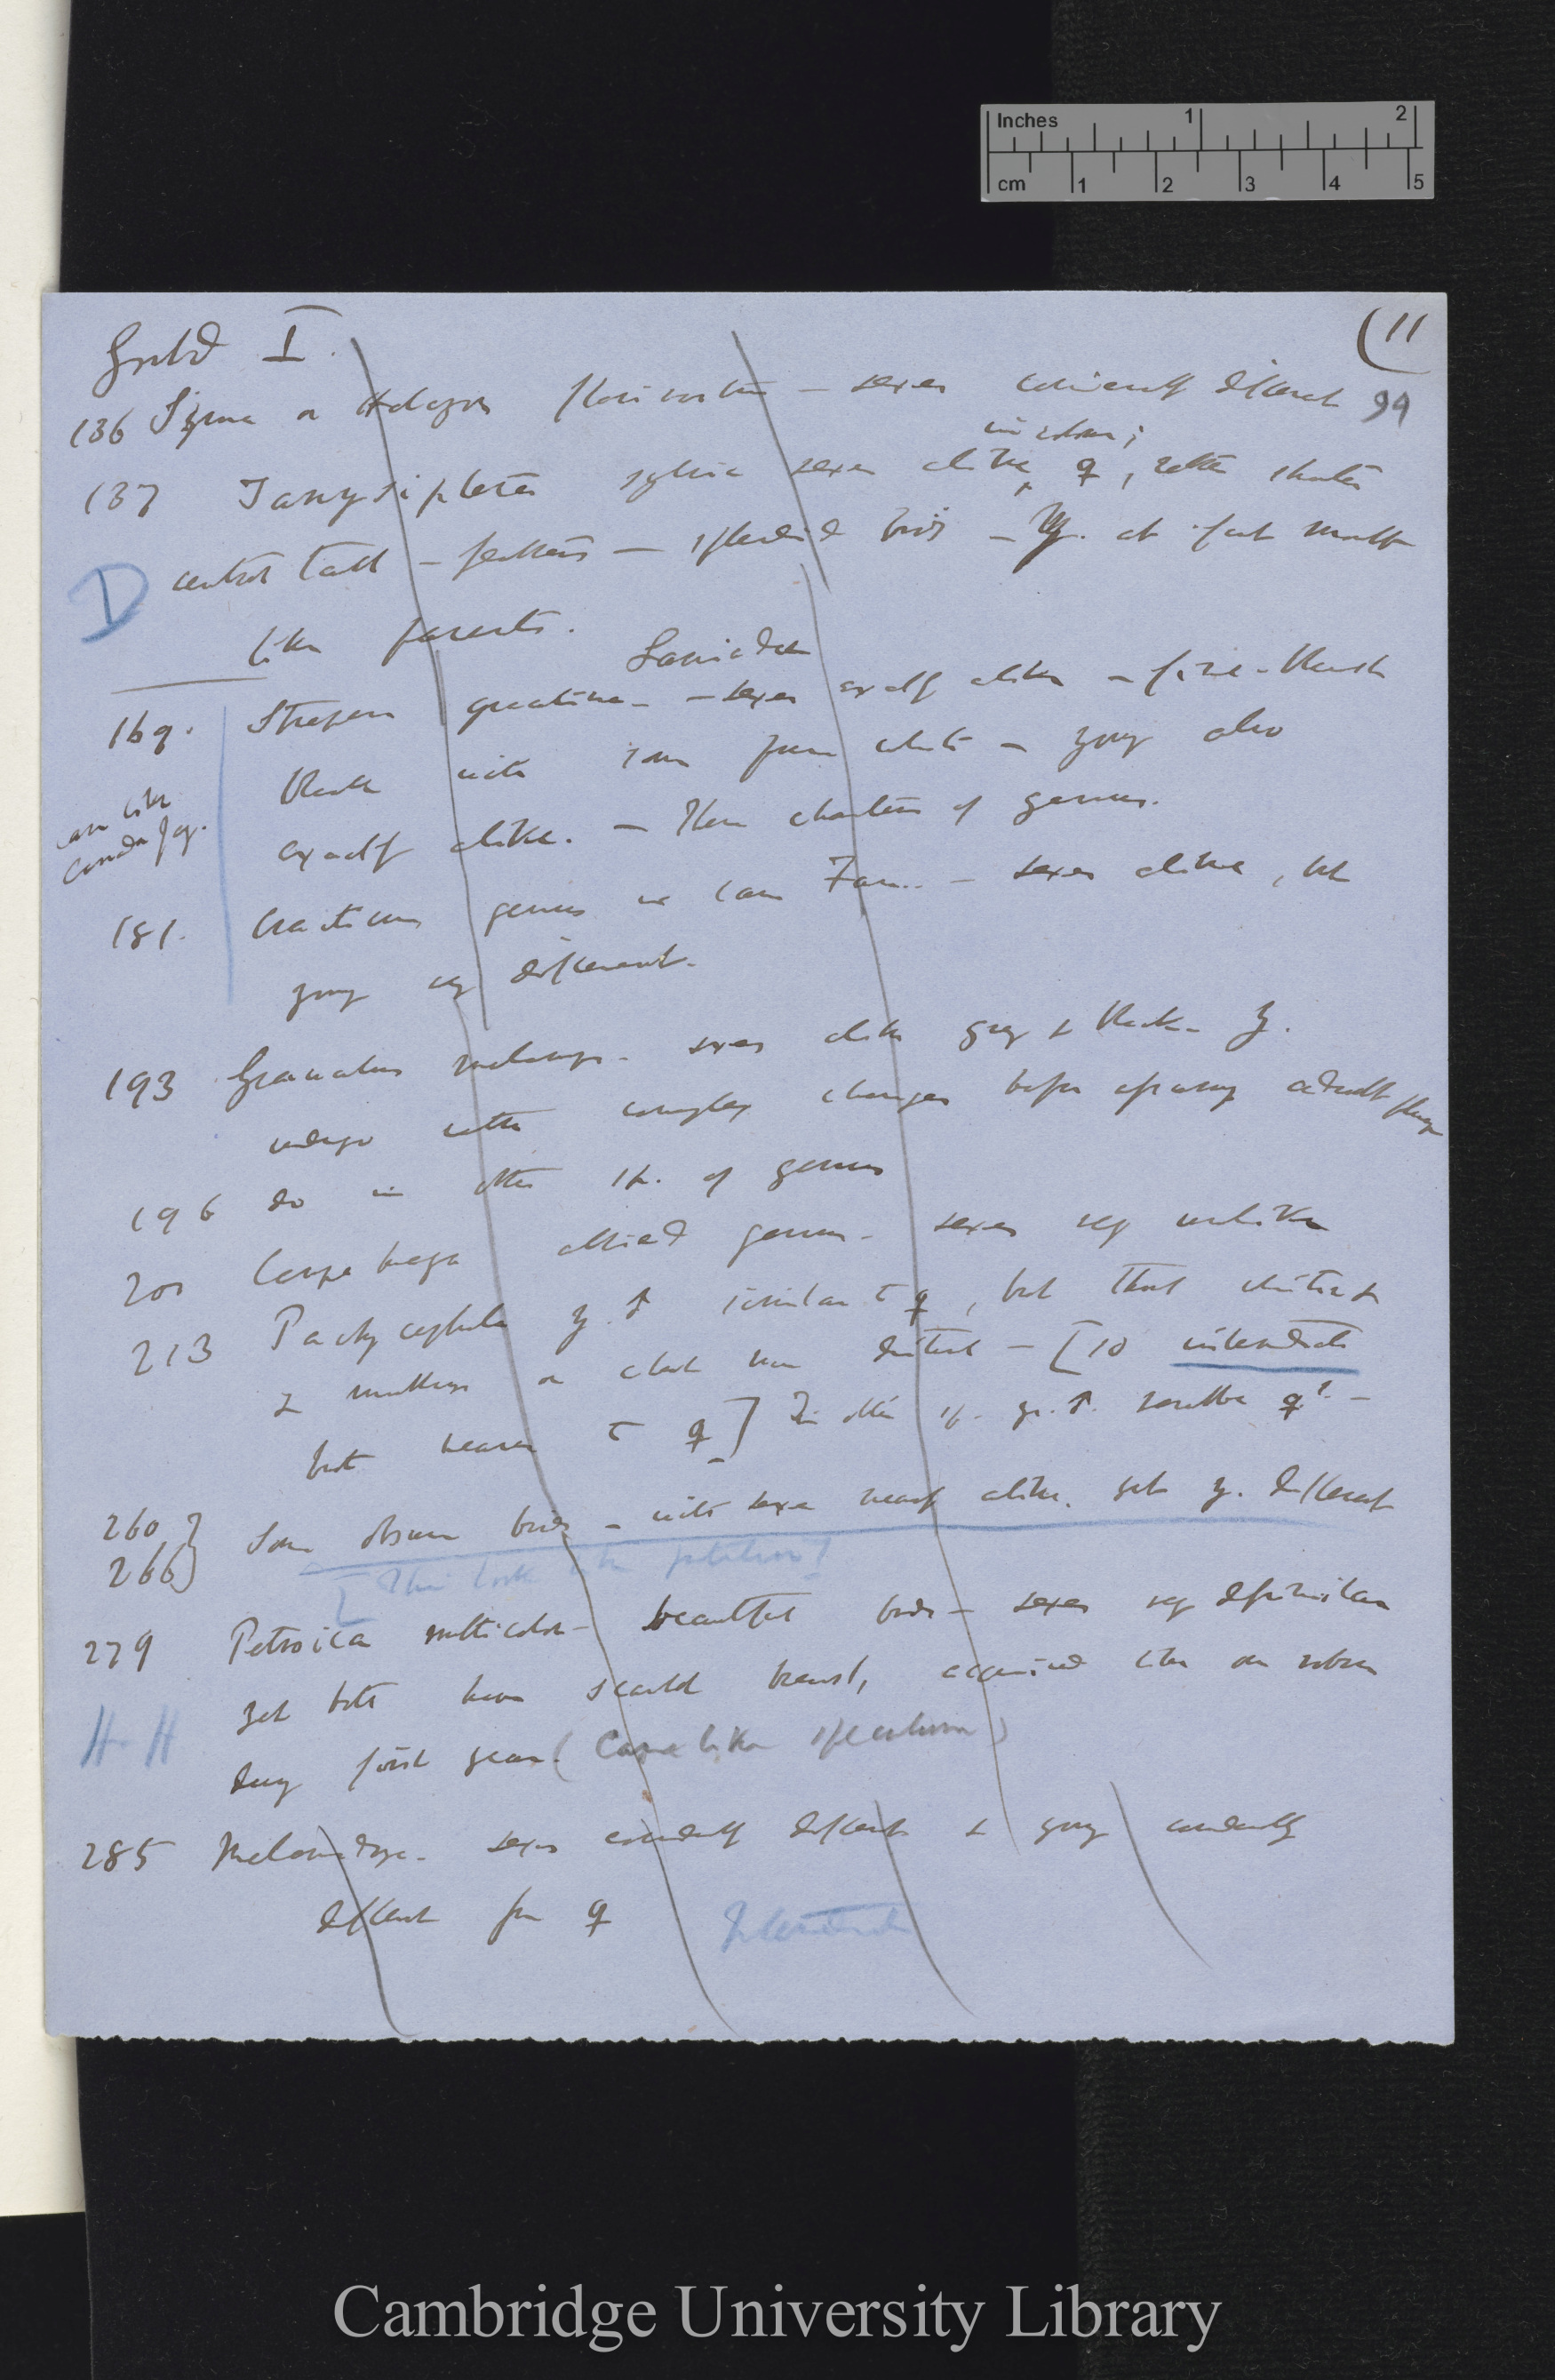 Inches 1 2
cm 1 2 3 4 5
Gould I. (11
136 Syma or Halcyon flavirostris — sexes different 94
in colour;
137 Tanysiptera sylvia sexes alike ♀, rather shorter
D central tail-feathers — splendid bird — Y. at first moult
like parents.
Laniadae
169. Strepera graculina — sexes exactly alike — fine-black
black with some pure white — young also
exactly alike. — These characters of genus.
181. Cracticus genus in same Fam. — sexes alike, but
young very different.
193 Graucalus melanops — sexes alike grey & black — Y.
undergo rather complex changes before assuming adult plumage
196 do in other sp. of genus
200 Campephaga allied genus — sexes very unlike
213 Pachycephala y. ♂ similar to ♀, but throat whitish &
— [so intermediate
but nearer to ♀] In other sp. y. ♂. resemble ♀
260 }
266 } Some obscure birds — with sexes nearly alike. yet y. different
[This look like
279 Petroica multicolor — beautiful birds — sexes very dissimilar
yet both have scarlet breast, acquired like our robin
H.H
during first year (Case like speculum)
285 Melanodryas — sexes considerably different & young considerably
different from ♀ Intermediate
Cambridge University Library